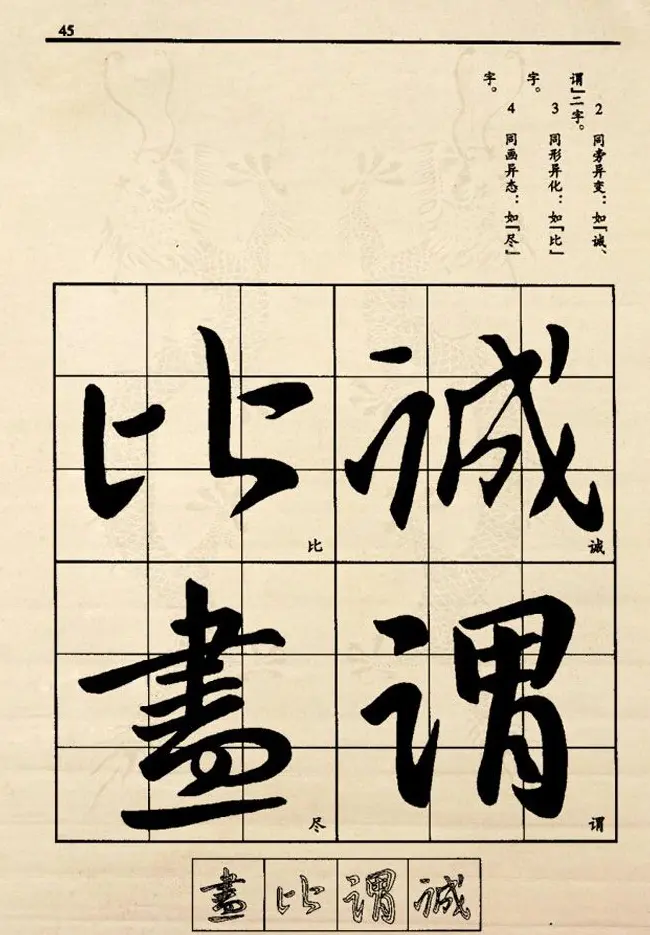 45
2 同旁异变：如『诚、
谓』二字。
3 同形异化：如『比』
字。
4 同画异态：如『尽』
字。
誠
诚
謂
谓
比
比
盡
尽
誠 謂 比 盡